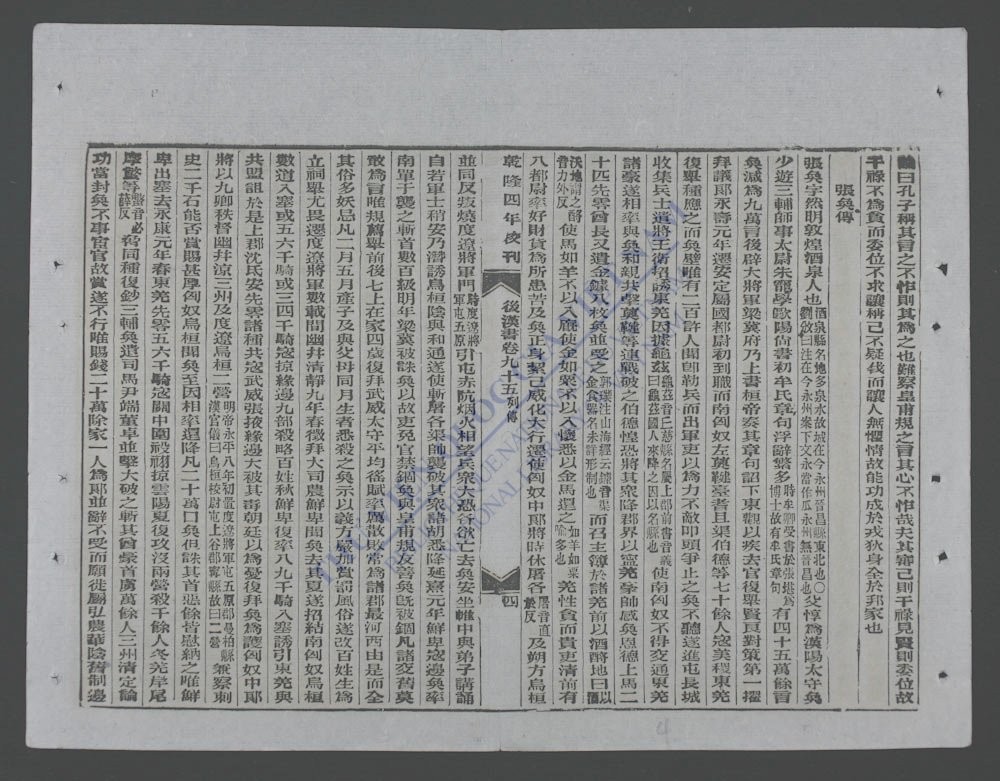 論曰孔子稱其言之不怍則其爲之也難察皇甫規之言其心不怍哉夫其審己則干祿見賢則委位故
干祿不爲貪而委位不求讓稱己不疑伐而讓人無懼情故能功成於戎狄身全於邦家也
張奐傳
張奐字然明敦煌酒泉人也酒泉縣名地多泉水故城在今永州晉昌縣東北也〇劉攽曰注在今永州案下文永當作瓜永州無晉昌也父惇爲漢陽太守奐
少遊三輔師事太尉朱寵學歐陽尚書初牟氏章句浮辭繁多時牟卿受書於張堪爲博士故有牟氏章句有四十五萬餘言
奐減爲九萬言後辟大將軍梁冀府乃上書桓帝奏其章句詔下東觀以疾去官復舉賢良對策第一擢
拜議郎永壽元年遷安定屬國都尉初到職而南匈奴左薁鞬臺耆且渠伯德等七千餘人寇美稷東羌
復舉種應之而奐壁唯有二百許人聞卽勒兵而出軍吏以爲力不敵叩頭爭止之奐不聽遂進屯長城
收集兵士遣將王衛招誘東羌因據龜茲龜茲音丘慈縣名屬上郡前書音義曰龜茲國人來降之因以名縣也使南匈奴不得交通東羌
諸豪遂相率與奐和親共擊薁鞬等連戰破之伯德惶恐將其衆降郡界以寧羌豪帥感奐恩德上馬二
十匹先零酋長又遺金鐻八枚奐並受之郭璞注山海經云鐻音渠金食器名未詳形制也而召主簿於諸羌前以酒酹地曰以酒
沃地謂之酹音力外反使馬如羊不以入廄使金如粟不以入懷悉以金馬還之如羊如粟喻多也羌性貪而貴吏清前有
八都尉率好財貨爲所患苦及奐正身絜己威化大行遷使匈奴中郎將時休屠各屠音直於反及朔方烏桓
乾隆四年校刊 後漢書卷九十五列傳 四
並同反叛燒度遼將軍門時度遼將軍屯五原引屯赤阬煙火相望兵衆大恐各欲亡去奐安坐帷中與弟子講誦
自若軍士稍安乃潛誘烏桓陰與和通遂使斬屠各渠帥襲破其衆諸胡悉降延熹元年鮮卑寇邊奐率
南單于擊之斬首數百級明年梁冀被誅奐以故吏免官禁錮奐與皇甫規友善奐旣被錮凡諸交舊莫
敢爲言唯規薦舉前後七上在家四歲復拜武威太守平均徭賦率厲散敗常爲諸郡最河西由是而全
其俗多妖忌凡二月五月產子及與父母同月生者悉殺之奐示以義方嚴加賞罰風俗遂改百姓生爲
立祠舉尤異遷度遼將軍數載間幽并清靜九年春徵拜大司農鮮卑聞奐去其夏遂招結南匈奴烏桓
數道入塞或五六千騎或三四千騎寇掠緣邊九郡殺略百姓秋鮮卑復率八九千騎入塞誘引東羌與
共盟詛於是上郡沈氐安定先零諸種共寇武威張掖緣邊大被其毒朝廷以爲憂復拜奐爲護匈奴中郎
將以九卿秩督幽并涼三州及度遼烏桓二營明帝永平八年初置度遼將軍屯五原郡曼柏縣漢官儀曰烏桓校尉屯上谷郡寧縣故曰二營兼察刺
史二千石能否賞賜甚厚匈奴烏桓聞奐至因相率還降凡二十萬口奐但誅其首惡餘皆慰納之唯鮮
卑出塞去永康元年春東羌先零五六千騎寇關中圍祋祤掠雲陽夏復攻沒兩營殺千餘人冬羌岸尾
摩蟞等蟞音必薛反脅同種復鈔三輔奐遣司馬尹端董卓並擊大破之斬其酋豪首虜萬餘人三州清定論
功當封奐不事宦官故賞遂不行唯賜錢二十萬除家一人爲郎並辭不受而願徙屬弘農華陰舊制邊